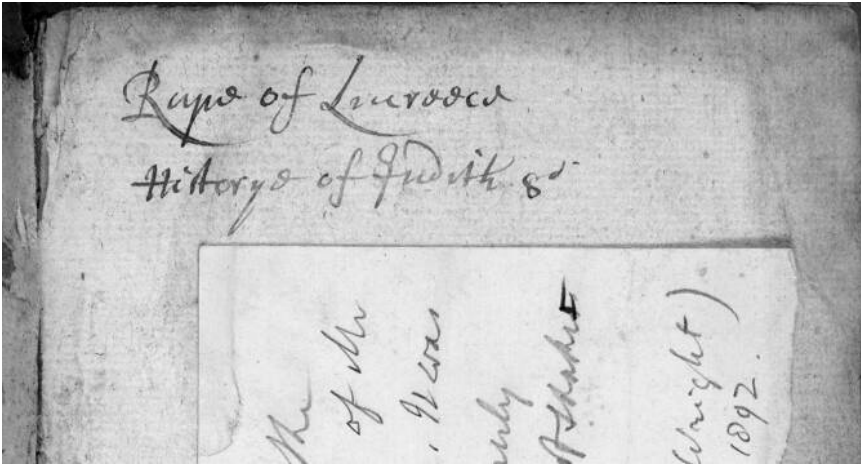 Rape of Lucreece
Historye of Judith 8d
the
of Mr
. It was
of Shakes
Wright)
1892.